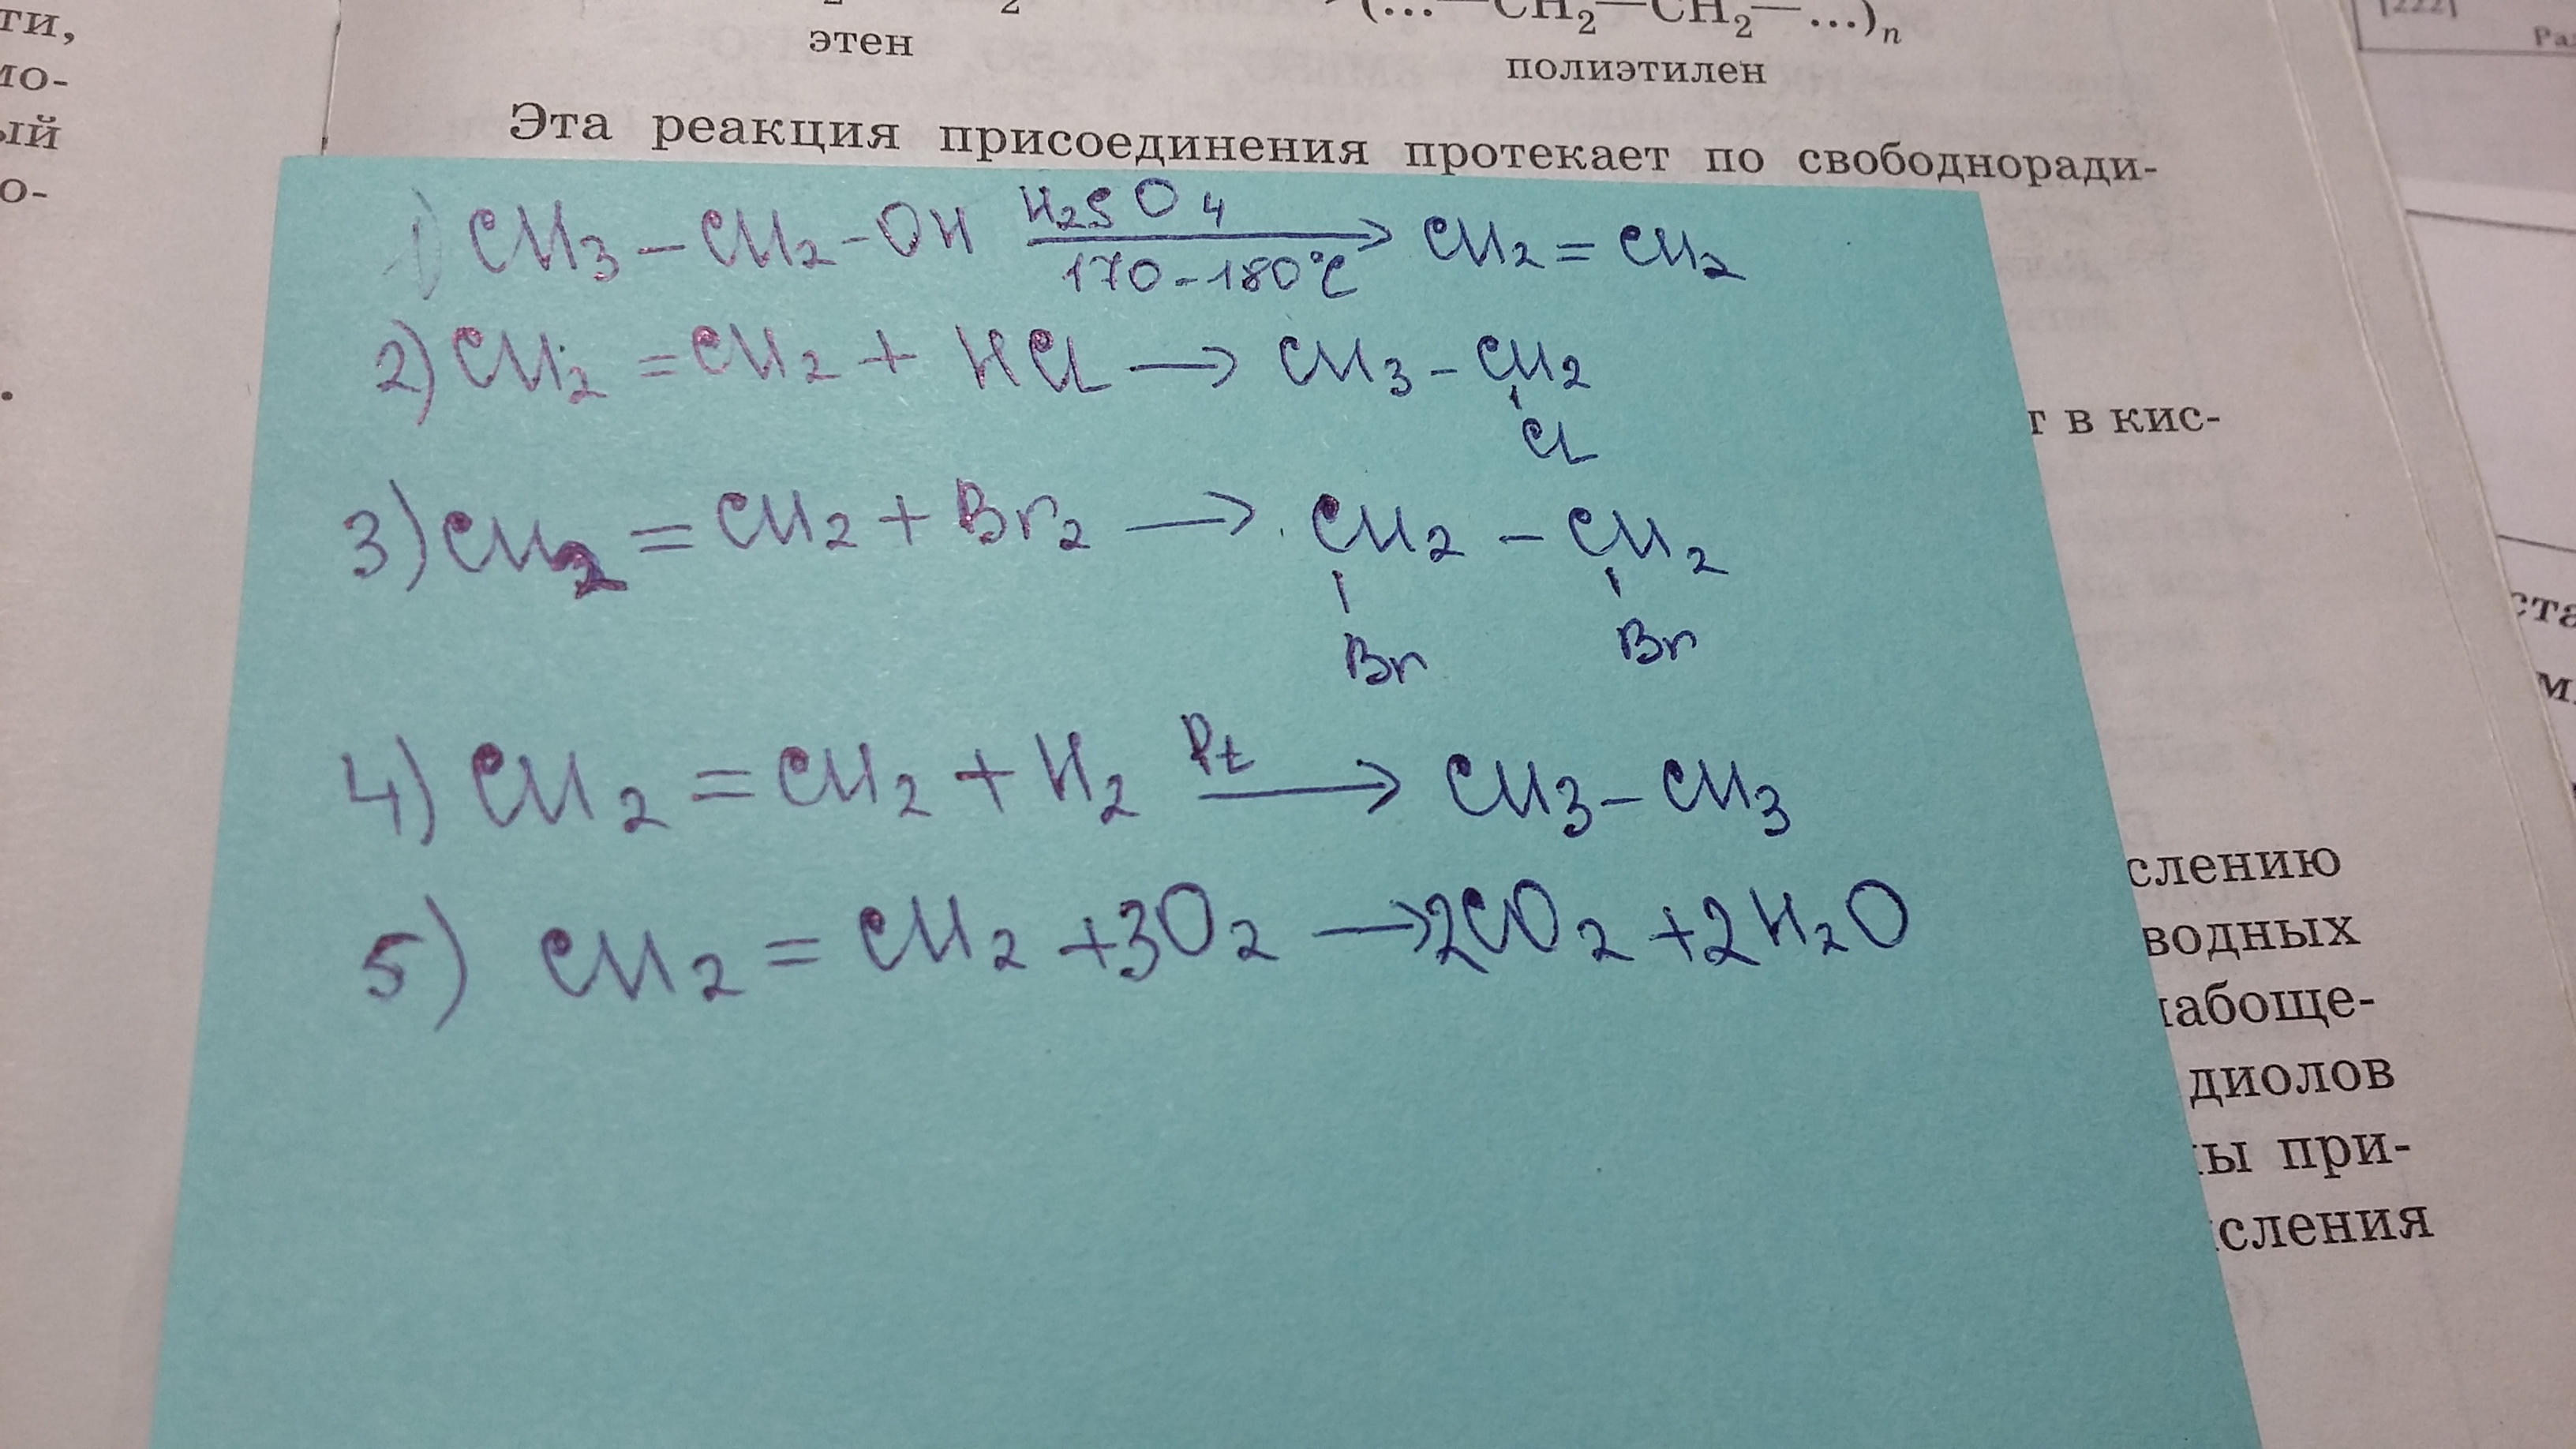 ти,
мо-
ый
о-
этен
(...—CH₂—CH₂—...)ₙ
полиэтилен
Эта реакция присоединения протекает по свободноради-
1) CH₃ – CH₂ – OH H₂SO₄ 170-180°C → CH₂ = CH₂
2) CH₂ = CH₂ + HCl → CH₃ – CH₂
Cl
3) CH₂ = CH₂ + Br₂ → CH₂ – CH₂
Br Br
4) CH₂ = CH₂ + H₂ Pt → CH₃ – CH₃
5) CH₂ = CH₂ + 3O₂ → 2CO₂ + 2H₂O
т в кис-
слению
водных
лабоще-
диолов
ны при-
сления
[222]
Раз
ста
м.